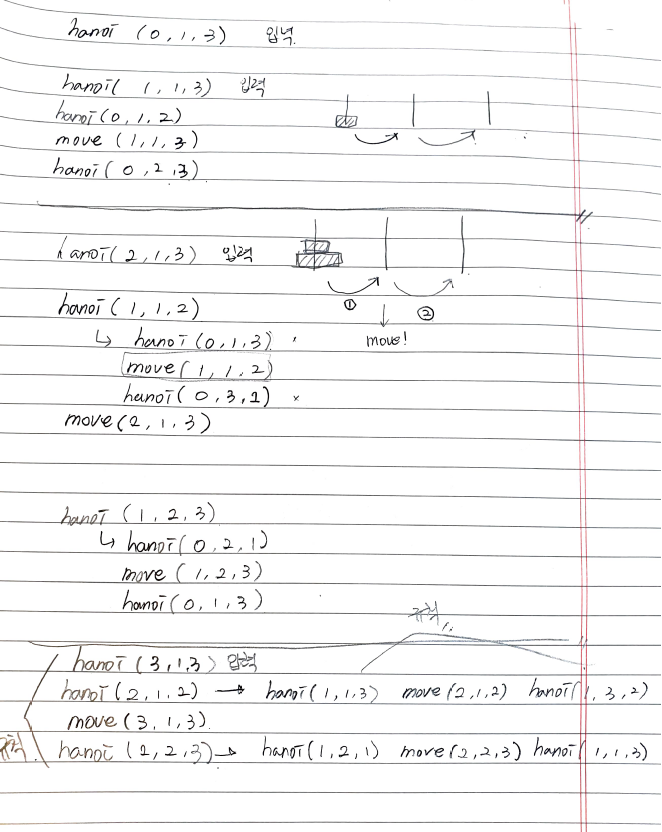 hanoi (0,1,3) 입력
hanoi( 1,1,3) 입력
hanoi(0,1,2)
move (1,1,3)
hanoi(0,2,3)
hanoi(2,1,3) 입력
① ②
hanoi(1,1,2)
↳ hanoi(0,1,3)
move!
move(1,1,2)
hanoi(0,3,2) ×
move(2,1,3)
hanoi (1,2,3)
↳ hanoi(0,2,1)
move (1,2,3)
hanoi(0,1,3)
규칙
hanoi (3,1,3) 입력
hanoi(2,1,2) → hanoi(1,1,3) move(2,1,2) hanoi(1,3,2)
move(3,1,3)
규칙. hanoi (2,2,3) → hanoi(1,2,1) move(2,2,3) hanoi(1,1,3)